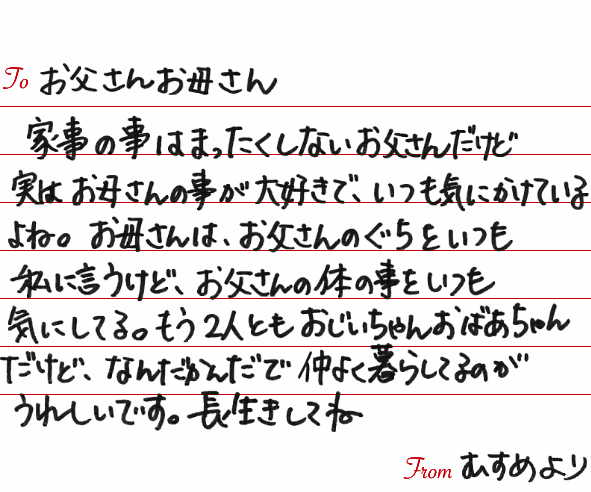 To お父さんお母さん
家事の事はまったくしないお父さんだけど
実はお母さんの事が大好きで、いつも気にかけている
よね。お母さんは、お父さんのぐちをいつも
私に言うけど、お父さんの体の事をいつも
気にしてる。もう2人ともおじいちゃんおばあちゃん
だけど、なんだかんだで仲よく暮らしてるのが
うれしいです。長生きしてね
From むすめより